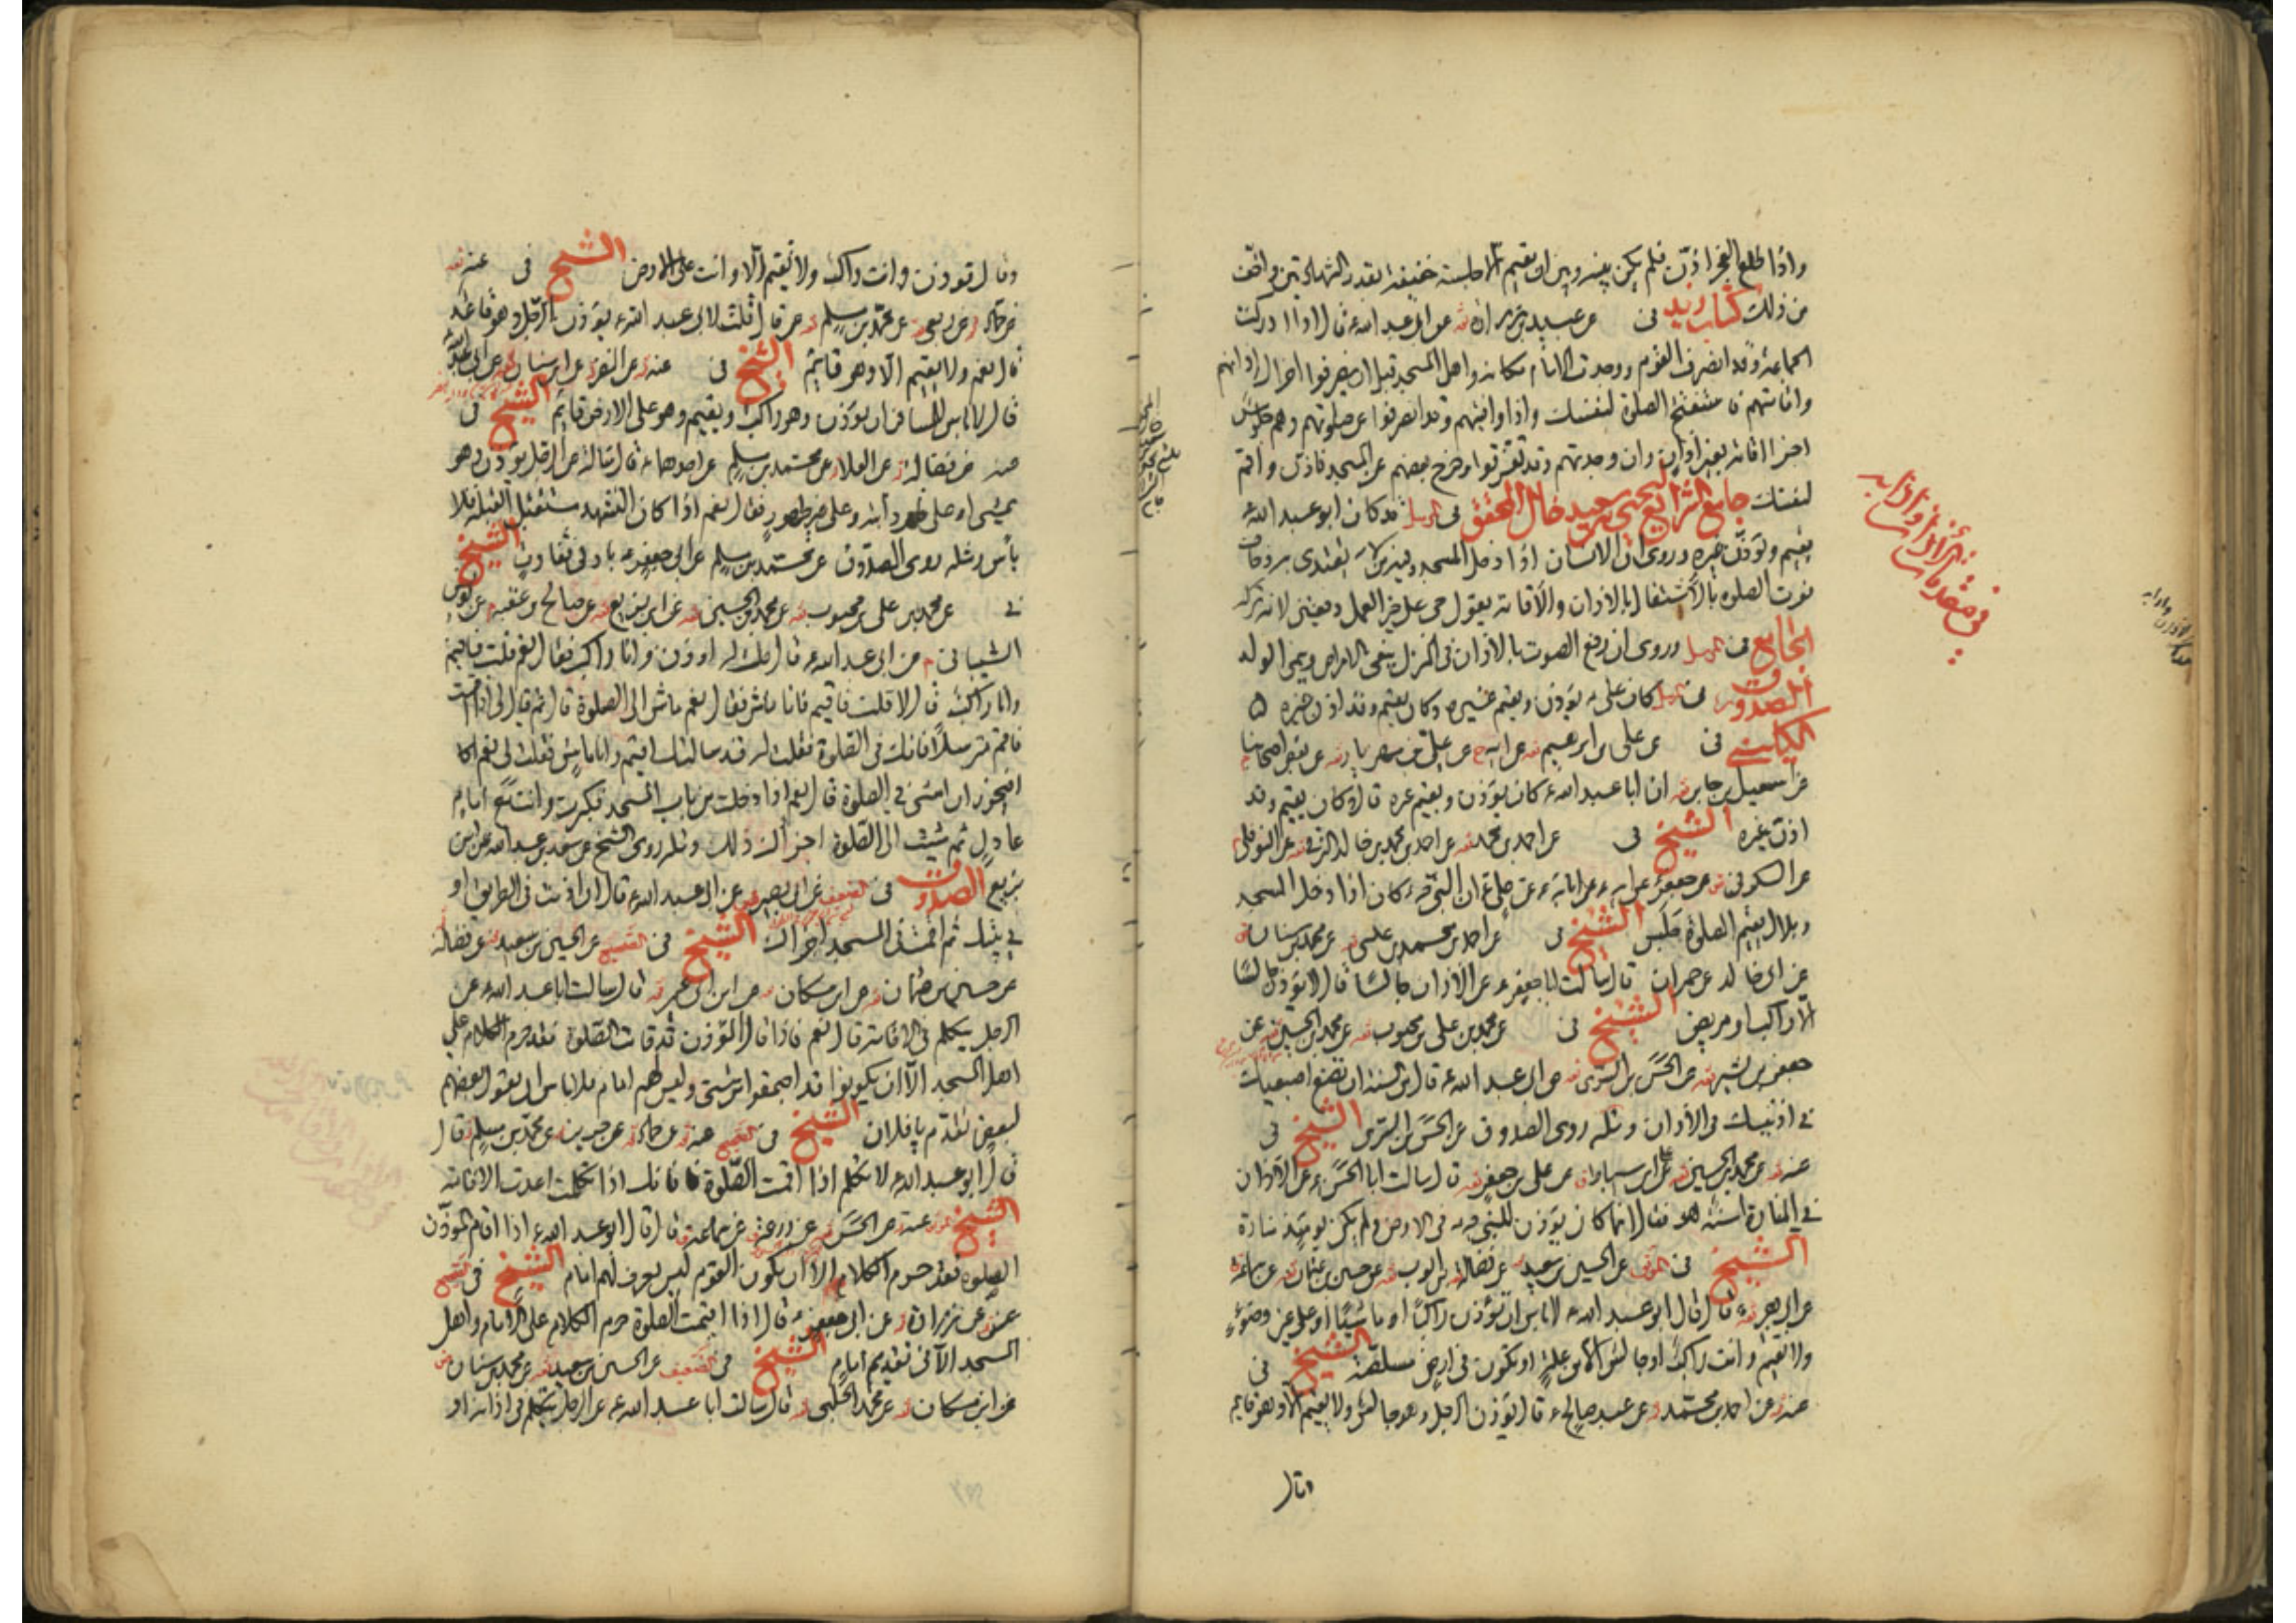 واذا طلع الفجر اذن فلم يكن بينه وبين ان يقيم الا جلسة خفيفة بقدر الشهادتين واخف
من ذلك كتاب زيد فى عن عبيد بن زرارة عن ابى عبد الله ع قال اذا ادركت
الجماعة وقد انصرف القوم ووجدت الامام مكانه واهل المسجد قبل ان ينصرفوا اجزأك اذانهم
واقامتهم فاستفتح الصلوة لنفسك واذا وافيتهم وقد انصرفوا عن صلوتهم وهم جلوس
اجزأ اقامة بغير اذان وان وجدتهم وقد تفرقوا وخرج بعضهم عن المسجد فاذن واقم
لنفسك جامع الشرايع ليحيى بن سعيد خال المحقق فى المرسل قد كان ابو عبد الله ع
يقيم ويؤذن غيره وروى ان الانسان اذا دخل المسجد وفيه من لا يقتدى به وخاف
فوت الصلوة بالاشتغال بالاذان والاقامة يقول حى على خير العمل دفعتين لانه تركه
الجامع فى المرسل وروى ان رفع الصوت بالاذان فى المنزل ينفى الامراض وينمى الولد
الصدوق فى المرسل كان على ع يؤذن ويقيم غيره وكان يقيم وقد اذن غيره
الكلينى فى عن على بن ابرهيم عن ابيه عن على بن مهزيار عن بعض اصحابنا
عن اسمعيل بن جابر ان ابا عبد الله ع كان يؤذن ويقيم غيره قال وكان يقيم وقد
اذن غيره الشيخ فى عن احمد بن محمد عن احمد بن محمد بن خالد البرقى عن النوفلى
عن السكونى عن جعفر عن ابيه عن ابائه ع عن على ع ان النبى ص كان اذا دخل المسجد
وبلال يقيم الصلوة جلس الشيخ فى عن احمد بن محمد بن عيسى عن محمد بن سنان
عن ابى خالد عن حمران قال سالت ابا جعفر ع عن الاذان جالسا قال لا يؤذن جالسا
الا راكب او مريض الشيخ فى عن محمد بن على بن محبوب عن محمد بن الحسين عن
جعفر بن بشير عن الحسن بن السرى عن ابى عبد الله ع قال من السنة ان تضع اصبعيك
فى اذنيك فى الاذان ومثله روى الصدوق عن الحسن بن السرى الشيخ فى
عنه عن محمد بن الحسين عن على بن اسباط عن على بن جعفر قال سالت ابا الحسن ع عن الاذان
فى المنارة اسنة هو فقال انما كان يؤذن للنبى ص فى الارض ولم يكن يومئذ منارة
الشيخ فى الموثق عن الحسين بن سعيد عن فضالة بن ايوب عن حسين بن عثمان عن سماعة
عن ابى بصير قال قال ابو عبد الله ع لا باس ان تؤذن راكبا او ماشيا او على غير وضوء
ولا تقيم وانت راكب او جالس الا من علة او تكون فى ارض ملصة الشيخ فى
عنه عن احمد بن محمد عن عبد صالح ع قال يؤذن الرجل وهو جالس ولا يقيم الا وهو قايم
وقال
فى مقدمات الاذان وادابه
وقال تؤذن وانت راكب ولا تقيم الا وانت على الارض الشيخ فى عنه
عن حماد عن ربعى عن محمد بن مسلم قال قلت لابى عبد الله ع يؤذن الرجل وهو قاعد
قال نعم ولا يقيم الا وهو قايم الشيخ فى عنه عن النضر عن ابن سنان عن ابى عبد الله
قال لا باس للمسافر ان يؤذن وهو راكب ويقيم وهو على الارض قايم الشيخ فى
عنه عن فضالة عن العلا عن محمد بن مسلم عن احدهما ع قال سالته عن الرجل يؤذن وهو
يمشى او على ظهر دابته وعلى غير طهور فقال نعم اذا كان التشهد مستقبل القبلة فلا
بأس ومثله روى الصدوق عن محمد بن مسلم عن ابى جعفر ع بادنى تفاوت الشيخ
فى عن محمد بن على بن محبوب عن محمد بن الحسين عن ابن بزيع عن صالح بن عقبة عن يونس
الشيبانى عن ابى عبد الله ع قال قلت له اوذن وانا راكب فقال نعم قلت فاقيم
وانا راكب قال لا قلت فاقيم وانا ماش فقال نعم ماش الى الصلوة قال ثم قال لى اذا اقمت
فاقم مترسلا فانك فى الصلوة فقلت له قد سالتك اقيم وانا ماش فقلت لى نعم
افيجوز ان امشى فى الصلوة قال نعم اذا دخلت من باب المسجد فكبرت وانت مع امام
عادل ثم مشيت الى الصلوة اجزاك ذلك ومثله روى الشيخ عن سعد بن عبد الله عن ابن
بزيع الصدوق فى الضعيف عن ابى بصير عن ابى عبد الله ع قال ان اذنت فى الطريق او
فى بيتك ثم اقمت فى المسجد اجزاك الشيخ فى الصحيح عن الحسين بن سعيد عن فضالة
عن حسين بن عثمان عن ابن مسكان عن ابن ابى عمير قال سالت ابا عبد الله ع عن
الرجل يتكلم فى الاقامة قال نعم فاذا قال المؤذن قد قامت الصلوة فقد حرم الكلام على
اهل المسجد الا ان يكونوا قد اجتمعوا من شتى وليس لهم امام فلا باس ان يقول بعضهم
لبعض تقدم يا فلان الشيخ فى الصحيح عنه عن حماد عن حريز عن محمد بن مسلم قال
قال ابو عبد الله ع لا تتكلم اذا اقمت الصلوة فانك اذا تكلمت اعدت الاقامة
الشيخ عنه عن الحسن عن زرعة عن سماعة قال قال ابو عبد الله ع اذا اقام المؤذن
الصلوة فقد حرم الكلام الا ان يكون القوم ليس يعرف لهم امام الشيخ فى الصحيح
عنه عن زرارة عن ابى جعفر ع قال اذا اقيمت الصلوة حرم الكلام على الامام واهل
المسجد الا فى تقديم امام الشيخ فى الضعيف عن الحسين بن سعيد عن محمد بن سنان
عن ابن مسكان عن محمد الحلبى قال سالت ابا عبد الله ع عن الرجل يتكلم فى اذانه او